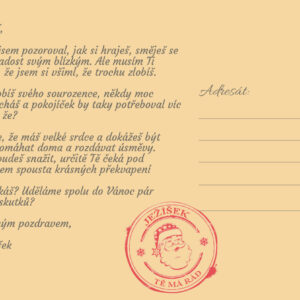 ,
jsem pozoroval, jak si hraješ, směješ se
radost svým blízkým. Ale musím Ti
, že jsem si všiml, že trochu zlobíš.
obíš svého sourozence, někdy moc
cháš a pokojíček by taky potřeboval víc
že?
e, že máš velké srdce a dokážeš být
omáhat doma a rozdávat úsměvy.
oudeš snažit, určitě Tě čeká pod
em spousta krásných překvapení!
káš? Uděláme spolu do Vánoc pár
skutků?
ým pozdravem,
šek
Adresát:
JEŽÍŠEK
TĚ MÁ RÁD